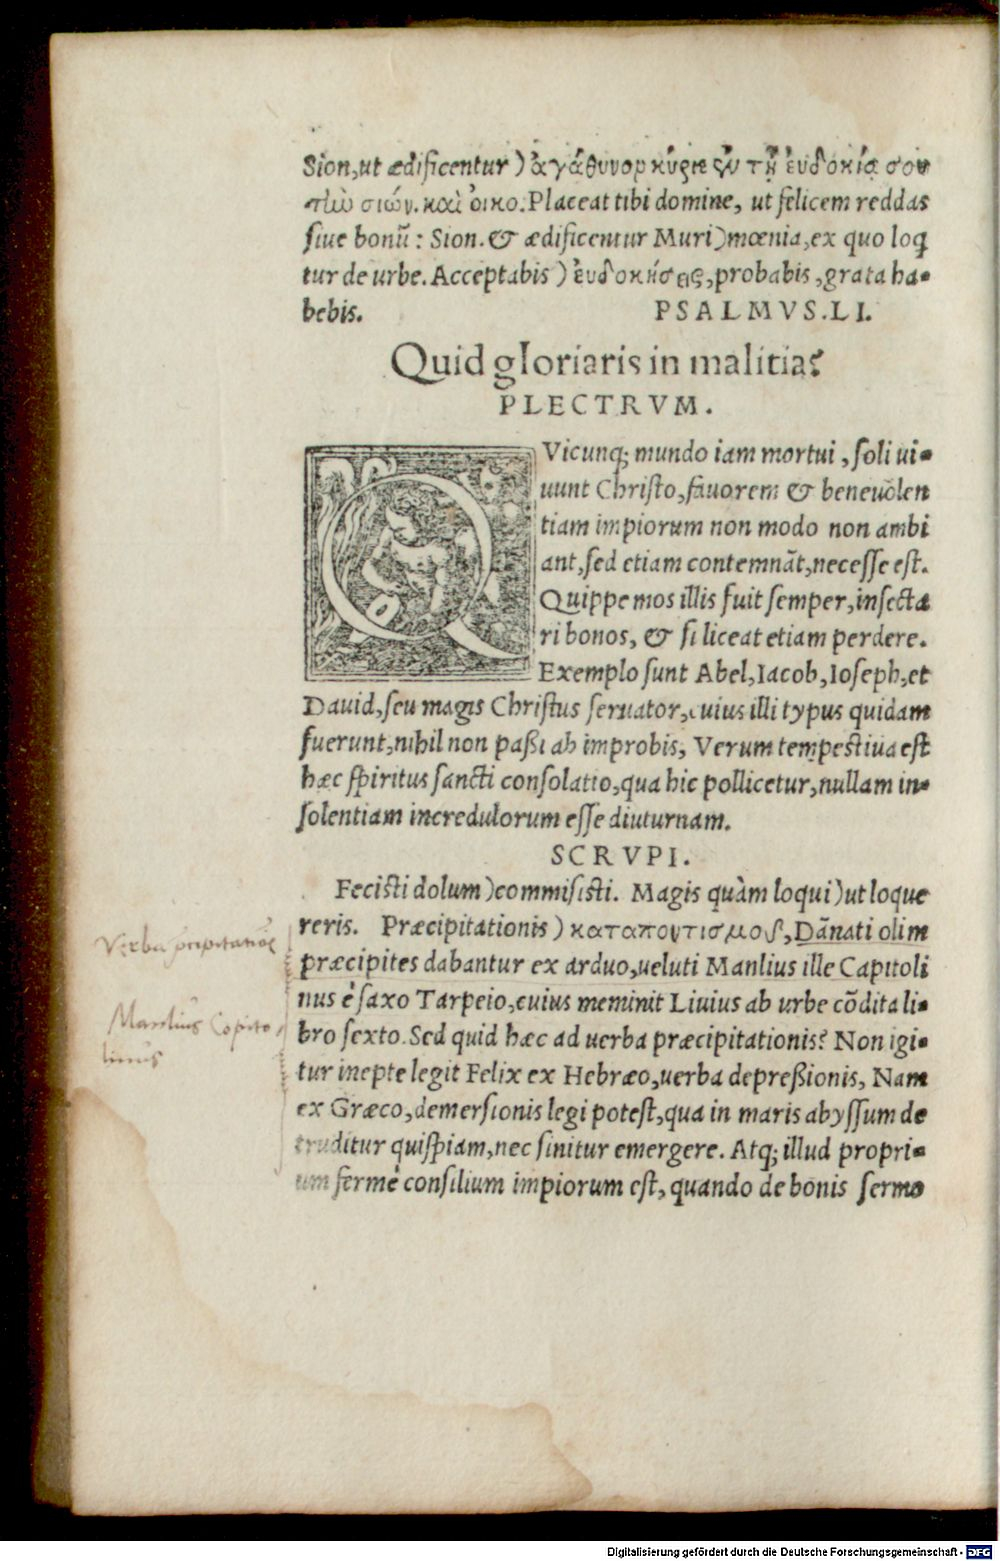 Sion, ut ædificentur) ἀγάθυνον κύριε ἐν τῇ ἐυδοκίᾳ σου
τὼ σιών. καὶ ὀικο. Placeat tibi domine, ut felicem reddas
siue bonũ: Sion. & ædificentur Muri) mœnia, ex quo loq̃
tur de urbe. Acceptabis) ἐυδοκήσεις, probabis, grata ha-
bebis. PSALMVS. LI.
Quid gloriaris in malitia?
PLECTRVM.
QVicunq; mundo iam mortui, soli ui-
uunt Christo, fauorem & beneuolen
tiam impiorum non modo non ambi
ant, sed etiam contemnãt, necesse est.
Quippe mos illis fuit semper, insecta
ri bonos, & si liceat etiam perdere.
Exemplo sunt Abel, Iacob, Ioseph, et
Dauid, seu magis Christus seruator, cuius illi typus quidam
fuerunt, nihil non paßi ab improbis, Verum tempestiua est
hæc spiritus sancti consolatio, qua hic pollicetur, nullam in-
solentiam incredulorum esse diuturnam.
SCRVPI.
Fecisti dolum) commisisti. Magis quàm loqui) ut loque
reris. Præcipitationis) καταποντισμοῦ, Dãnati olim
præcipites dabantur ex arduo, ueluti Manlius ille Capitoli
nus è saxo Tarpeio, cuius meminit Liuius ab urbe cõdita li-
bro sexto. Sed quid hæc ad uerba præcipitationis? Non igi-
tur inepte legit Felix ex Hebræo, uerba depreßionis, Nam
ex Græco, demersionis legi potest, qua in maris abyssum de
truditur quispiam, nec sinitur emergere. Atq; illud propri-
um fermè consilium impiorum est, quando de bonis sermo
Verba
Manlius Capito-
linus
Digitalisierung gefördert durch die Deutsche Forschungsgemeinschaft - DFG